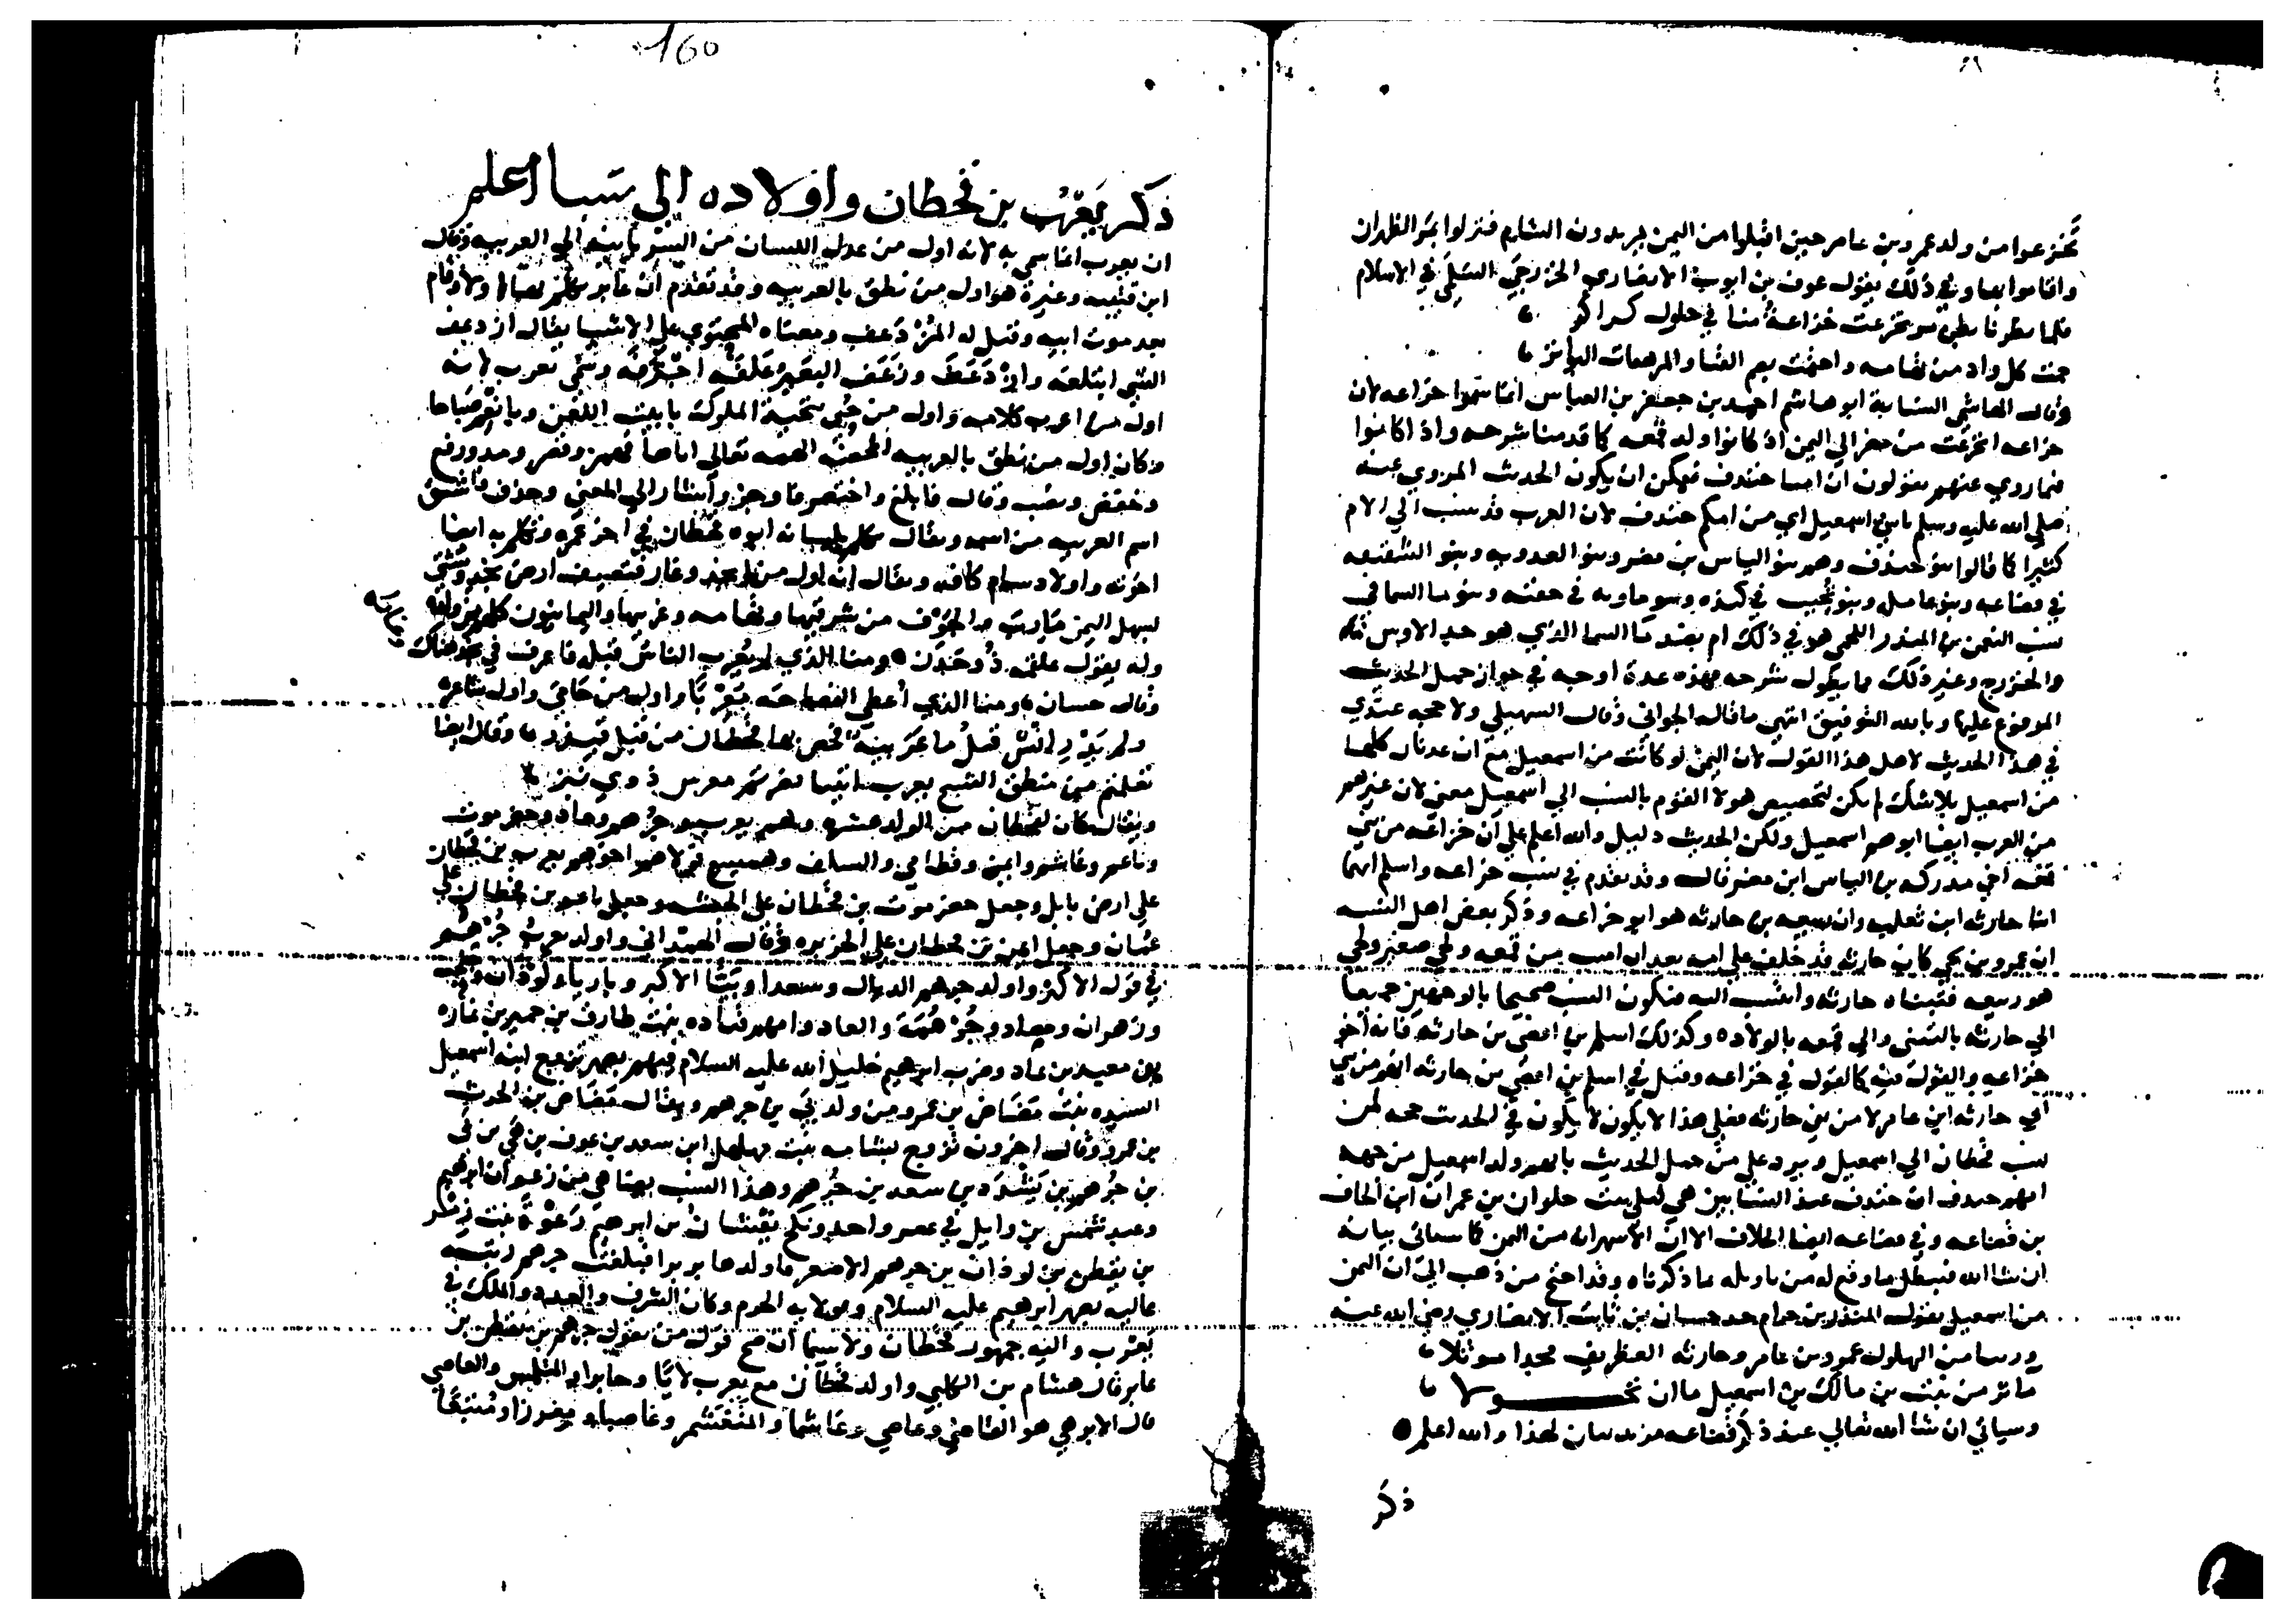 تخزعوا من ولد عمرو بن عامر حين اقبلوا من اليمن يريدون الشام فنزلوا بمر الظهران
واقاموا بها وفي ذلك يقول عوف بن ايوب الانصاري الخزرجي السلمي في الاسلام
فلما بطن مر تخزعت خزاعة منا في حلول كراكر
حمت كل واد من تهامه واحتمت بصم القنا والمرهفات البواتر
وقال الهاشمي النسابة ابو هاشم احمد بن جعفر بن العباس انما سموا خزاعه لان
خزاعه انخزعت من مضر الي اليمن اذ كانوا ولد قمعه كما قدمنا شرحه واذا كانوا
فيما روي عنهم يقولون ان امنا خندف فيمكن ان يكون الحديث المروي عنه
صلي الله عليه وسلم يا بني اسمعيل اي من امكم خندف لان العرب قد تنسب الي الام
كثيرا كما قالوا بنو خندف وهم بنو الياس بن مضر وبنو العدويه وبنو الشقيقه
في قضاعه وبنو عامله وبنو تجيب في كنده وبنو ماويه في وبنو ما السما في
نسب النعمن بن المنذر اللخمي هو في ذلك ام بضد ما السما الذي هو جد الاوس
والخزرج وغير ذلك مما يطول شرحه فهذه عدة اوجه في جواز حمل الحديث
المرفوع عليها وبالله التوفيق انتهي ما قاله الجواني وقال السهيلي ولا حجه عندي
في هذا الحديث لاهل هذا القول لان اليمن لو كانت من اسمعيل مع ان عدنان كلها
من اسمعيل بلا شك لم يكن لتخصيص هولا القوم بالنسب الي اسمعيل معني لان غيرهم
من العرب ايضا ابوهم اسمعيل ولكن الحديث دليل والله اعلم علي ان خزاعه من بني
قمعه اخي مدركه بن الياس ابن مضر قال وقد تقدم في نسب خزاعه واسلم انهما
ابنا حارثه ابن ثعلبه وان ربيعه بن حارثه هو ابو خزاعه وذكر بعض اهل النسب
ان عمرو بن لحي كان حارثه قد خلف علي امه بعد ان من قمعه ولحي صغير ولحي
هو ربيعه فتبناه حارثه وانتسب اليه فيكون النسب صحيحا بالوجهين جميعا
الي حارثه بالتبني والي قمعه بالولاده وكذلك اسلم بن افصي بن حارثه فانه اخو
خزاعه والقول فيه كالقول في خزاعه وقيل في اسلم بن افصي بن حارثه انهم من بني
ابي حارثه ابن عامر لا من بن حارثه فعلي هذا لا يكون في الحديث حجه لمن
نسب قحطان الي اسمعيل ويرد علي من حمل الحديث بانهم ولد اسمعيل من جهه
امهم خندف ان خندف عند النسابين هي ليلي بنت حلوان بن عمران ابن الحاف
بن قضاعه وفي قضاعه ايضا الخلاف الا ان الاشهر انه من اليمن كما سياتي بيانه
ان شا الله فبطل ما وقع له من تاويله بما ذكرناه وقد احتج من ذهب الي ان اليمن
من اسمعيل بقول المنذر بن حرام جد حسان بن ثابت الانصاري رضي الله عنه
ورثنا من البهلول عمرو بن عامر وحارثه الغطريف مجدا موثلا
ماثر من بنت بن مالك بن اسمعيل ما ان تحولا
وسياتي ان شا الله تعالي عند ذكر قضاعه مزيد بيان لهذا والله اعلم
ذكر
160
ذكر يعرب بن قحطان واولاده الي سبا اعلم
ان يعرب انما سمي به لانه اول من عدل اللسان من السريانيه الي العربيه وقال
ابن قتيبه وغيره هو اول من نطق بالعربيه وقد تقدم ان عابر تكلم بها ولا وقام
بعد موت ابيه وقيل له المزدعف ومعناه المحتوي علي الاشيا يقال ازدعف
الشي ابتلعه وازدعف وزعف البعير علفه وسمي يعرب لانه
اول من اعرب كلامه واول من حيي بتحية الملوك بابيت اللعن وبانعم صباحا
وكان اول من نطق بالعربيه المحضه الهمه تعالي اياها فهمز وقصر ومد ورفع
وخفض ونصب وقال فابلغ واختصر فاوجز واشار الي المعني وحذف واشتق
اسم العربيه من اسمه ويقال تكلم بلسانه ابوه قحطان في اخر عمره وتكلم به ايضا
اخوته واولاد سام كافه ويقال انه اول من انجد وغار فتصيف ارض نجد وشتي
لسهل اليمن مارب والجوف من شرقيها وتهامه وغربيها واليمانيون كلهم
وله يقول علقمه ذو جدن ومنا الذي لم يعرب الناس قبله فاعرب في نجد هناك
وقال حسان ومنا الذي اعطي الفصاحه يعربا واول من حامي واول شاعر
ولم يدر انس قبل ما عربيه فخص بها قحطان من قبل قيذر وقال ايضا
تعلمتم من منطق الشيخ يعرب ابينا فصرتم معربين ذوي نفر
ويقال كان لقحطان من الولد عشره وهم يعرب وجرهم وعاد وحضرموت
وناعم وغاشم وايمن وقطامي والسلف وهميسع فولا هوا اخوهم يعرب بن قحطان
علي ارض بابل وجعل حضرموت بن قحطان علي الحبشه وجعل ناعم بن قحطان علي
عمان وجعل ايمن بن قحطان علي الجزيره وقال الهمداني واولد يعرب جرهم
في قول الاكثر واولد جرهم الديال وسعدا ونبتا الاكبر وباريا ولوذان
وزهوان ومصاد وجرهمه والعاد وامهم قتاده بنت طارف بن حمير بن عماره
بن معيد بن عاد وضرب ابرهيم خليل الله عليه السلام فيهم بصهر تزويج ابنه اسمعيل
السيده بنت مضاض بن عمرو من ولد بن جرهم ويقال مضاض بن الحرث
بن عمرو وقال اخرون تزوج لبشامه بنت مهلهل ابن سعد بن عوف بن هي بن
بن جرهم بن يشدد بن سعد بن جرهم وهذا النسب بضاهي من زعم ان ابرهيم
وعبد شمس بن وايل في عصر واحد ونكح يقشان بن ابرهيم رعوة بنت زمر
بن يقطن بن لوذان بن جرهم الاصغر فاولدها بربرا فبلغت جرهم رتبه
عاليه بصهر ابرهيم عليه السلام وبولايه الحرم وكان الشرف والعدد والملك في
يعرب واليه جمهور قحطان ولا سيما ان صح قول من يقول جرهم بن يقطن بن
عابر قال هشام بن الكلبي واولد قحطان مع يعرب لايا وجابرا والمتلمس والعاصي
قال الابوهي هو القاضي وعاصي وعاشما والمتغشمر وغاصبا ومغورا ومنيعا